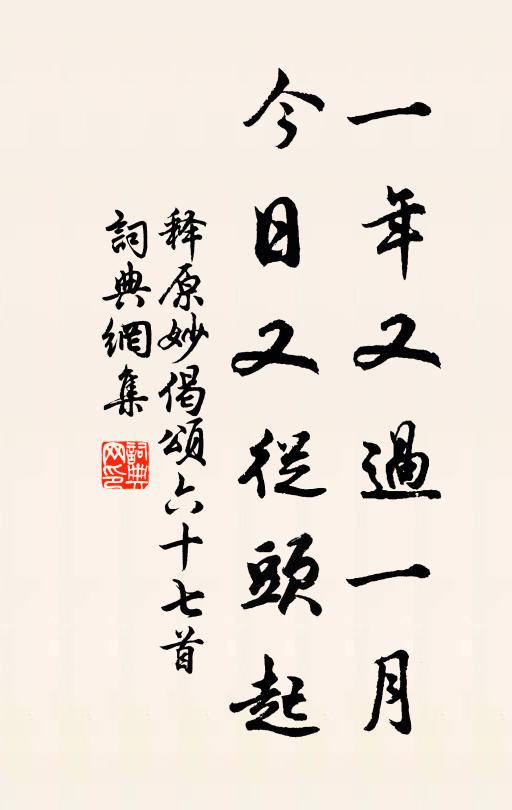 一年又過一月
今日又從頭起
释原妙偈頌六十七首
詞典網集
詞典網印